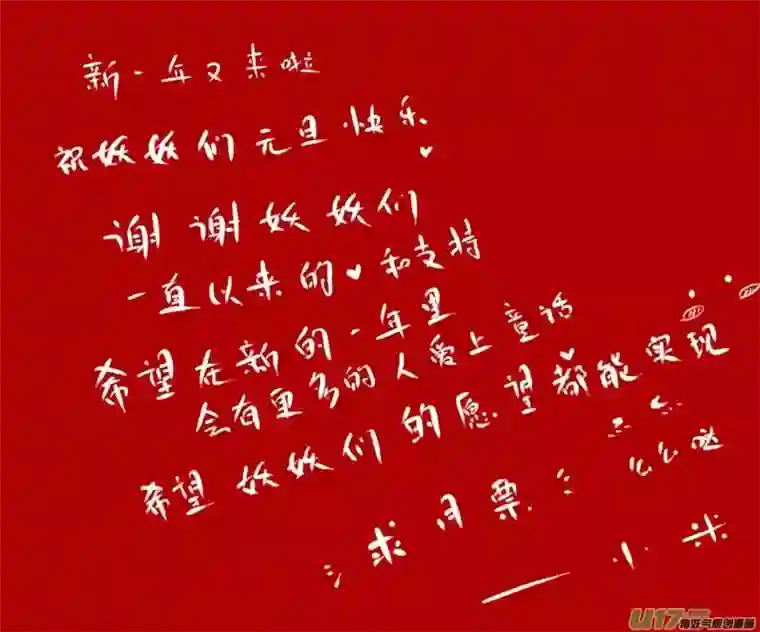 新一年又来啦
祝妖妖们元旦快乐
谢谢妖妖们
一直以来的♥和支持
希望在新的一年里
会有更多的人爱上童话
希望妖妖们的愿望都能实现
么么哒
求月票
——小米
U17
有妖气原创漫画